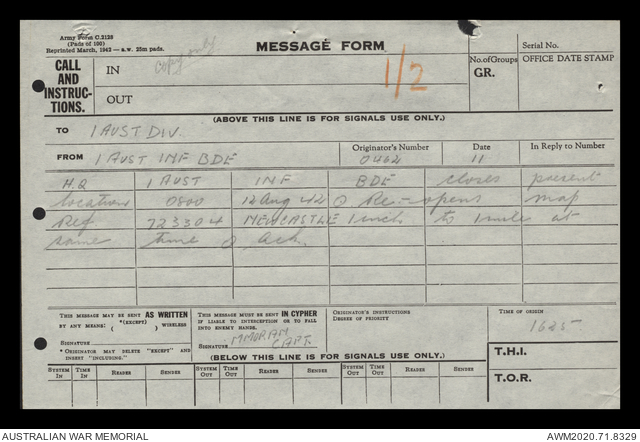 Army Form C.2128
(Pads of 100)
Reprinted March, 1942 — s.w. 25m pads.
MESSAGE FORM
Serial No.
CALL AND INSTRUCTIONS.
IN
copy only
1/2
No. of Groups
GR.
OFFICE DATE STAMP
OUT
(ABOVE THIS LINE IS FOR SIGNALS USE ONLY.)
TO 1 AUST DIV.
FROM 1 AUST INF BDE
Originator's Number
0462
Date
11
In Reply to Number
H.Q 1 AUST INF BDE closes present
location 0800 12 Aug 42 O Re-opens map
Ref 723304 NEWCASTLE 1 inch to 1 mile at
same time O Ack.
THIS MESSAGE MAY BE SENT AS WRITTEN
BY ANY MEANS: *(EXCEPT) ( ) WIRELESS
SIGNATURE
* ORIGINATOR MAY DELETE "EXCEPT" AND INSERT "INCLUDING."
THIS MESSAGE MUST BE SENT IN CYPHER
IF LIABLE TO INTERCEPTION OR TO FALL INTO ENEMY HANDS.
SIGNATURE MMORAN CAPT.
ORIGINATOR'S INSTRUCTIONS
DEGREE OF PRIORITY
TIME OF ORIGIN
1625
(BELOW THIS LINE IS FOR SIGNALS USE ONLY.)
T.H.I.
T.O.R.
SYSTEM IN TIME IN READER SENDER SYSTEM OUT TIME OUT READER SENDER SYSTEM OUT TIME OUT READER SENDER
AUSTRALIAN WAR MEMORIAL
AWM2020.71.8329